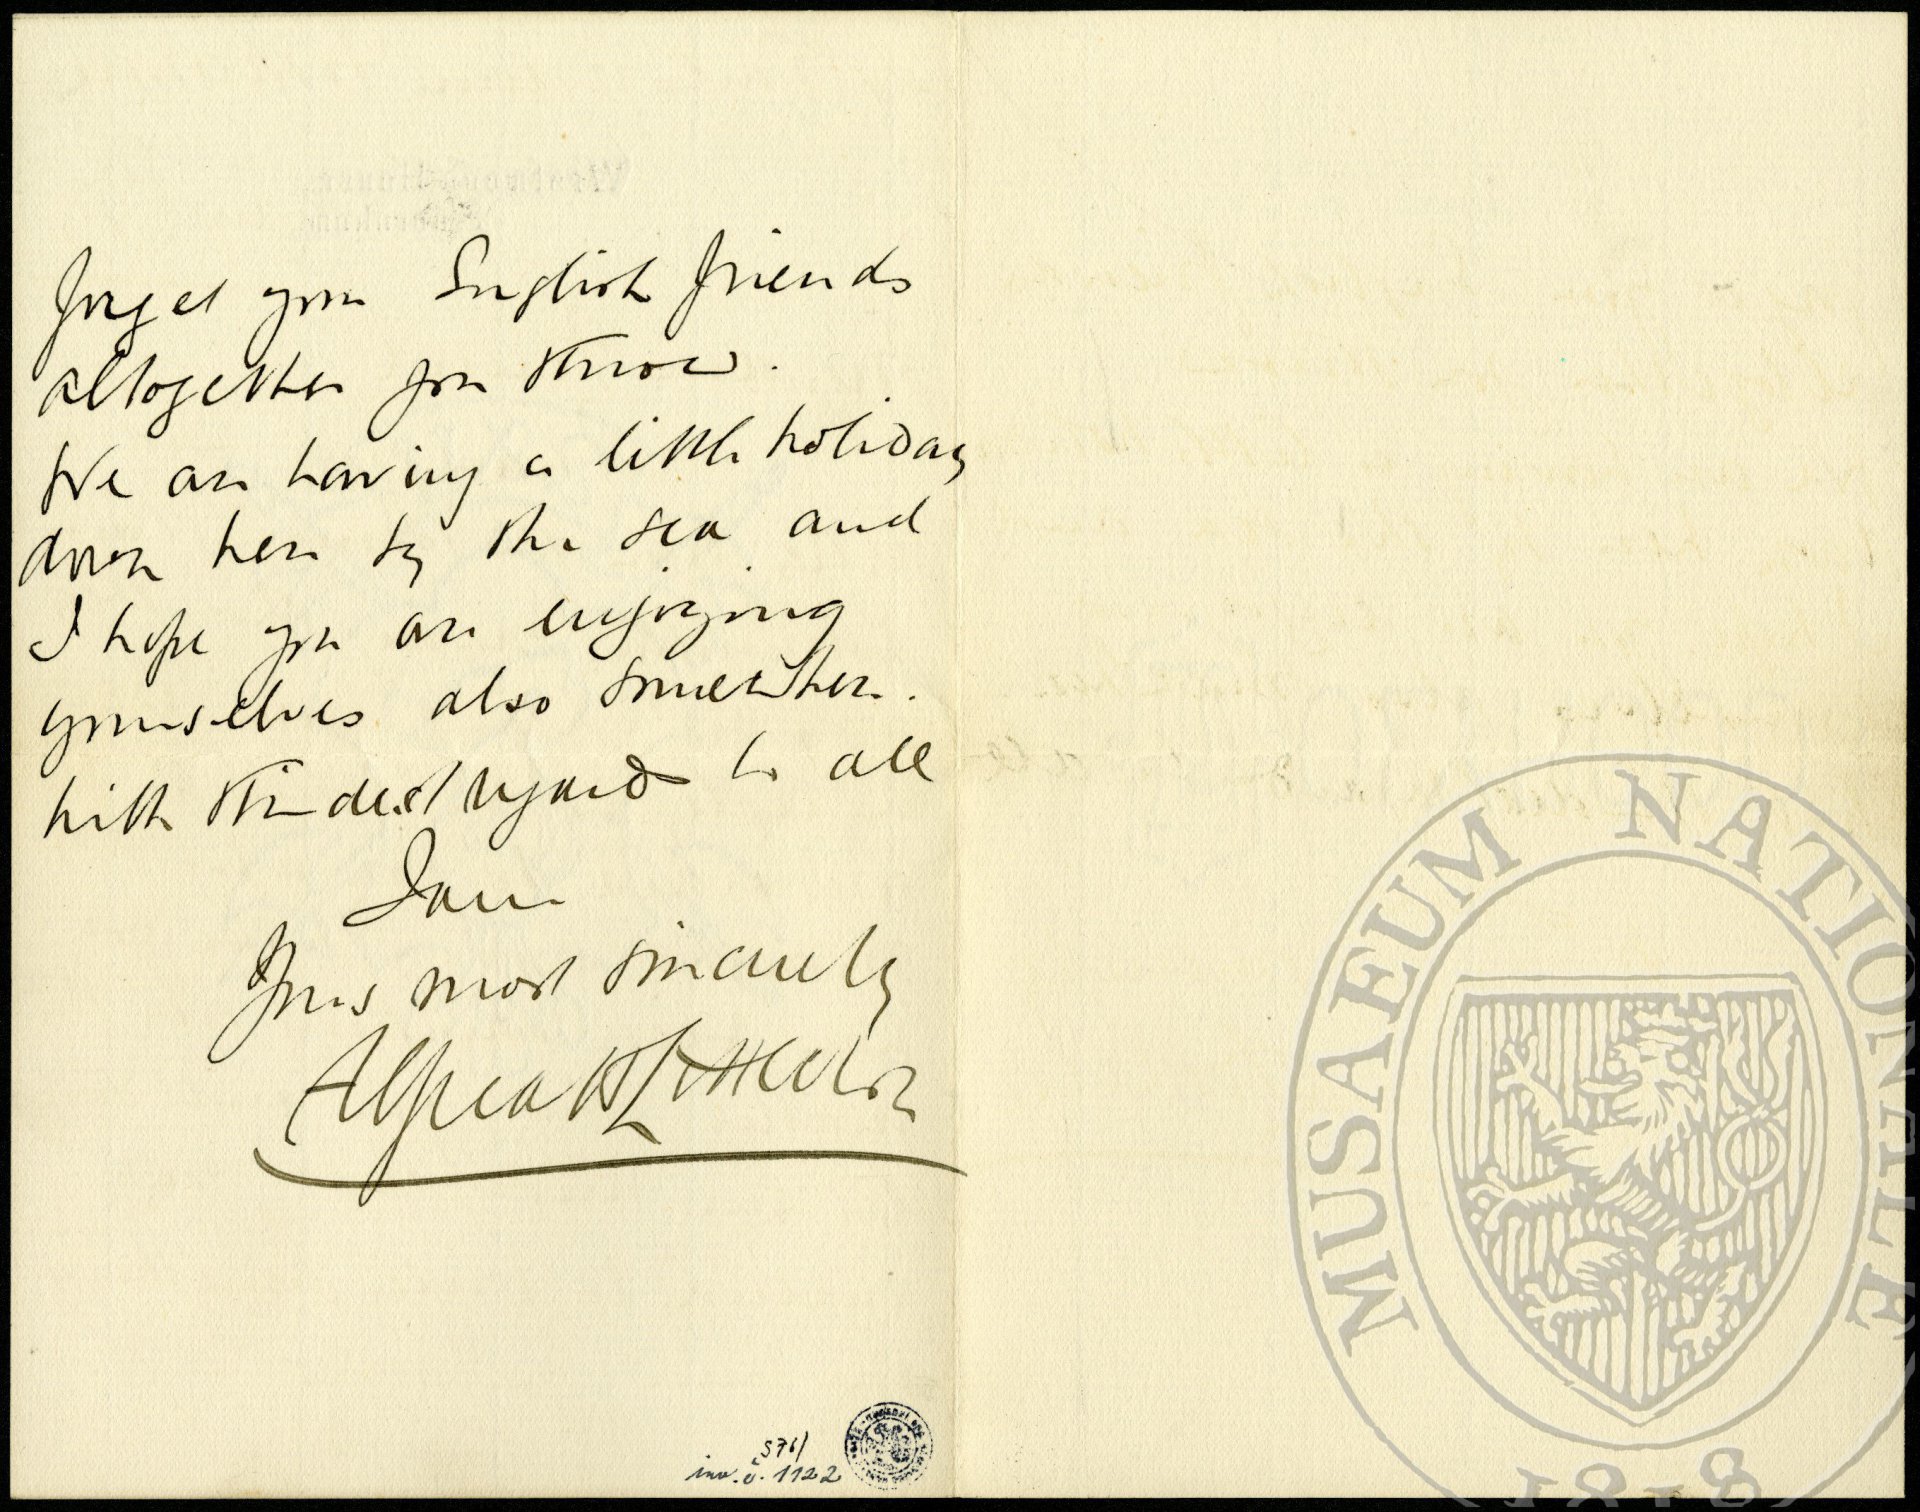 forget your English friends
altogether you know.
We are having a little holiday
down here by the sea and
I hope you are enjoying
yourselves also somewhere.
With kindest regards to all
I am
Yours most sincerely
Alfred H Littleton
S76/
inv. č. 1122
MUSAEUM NATIONALE
1818